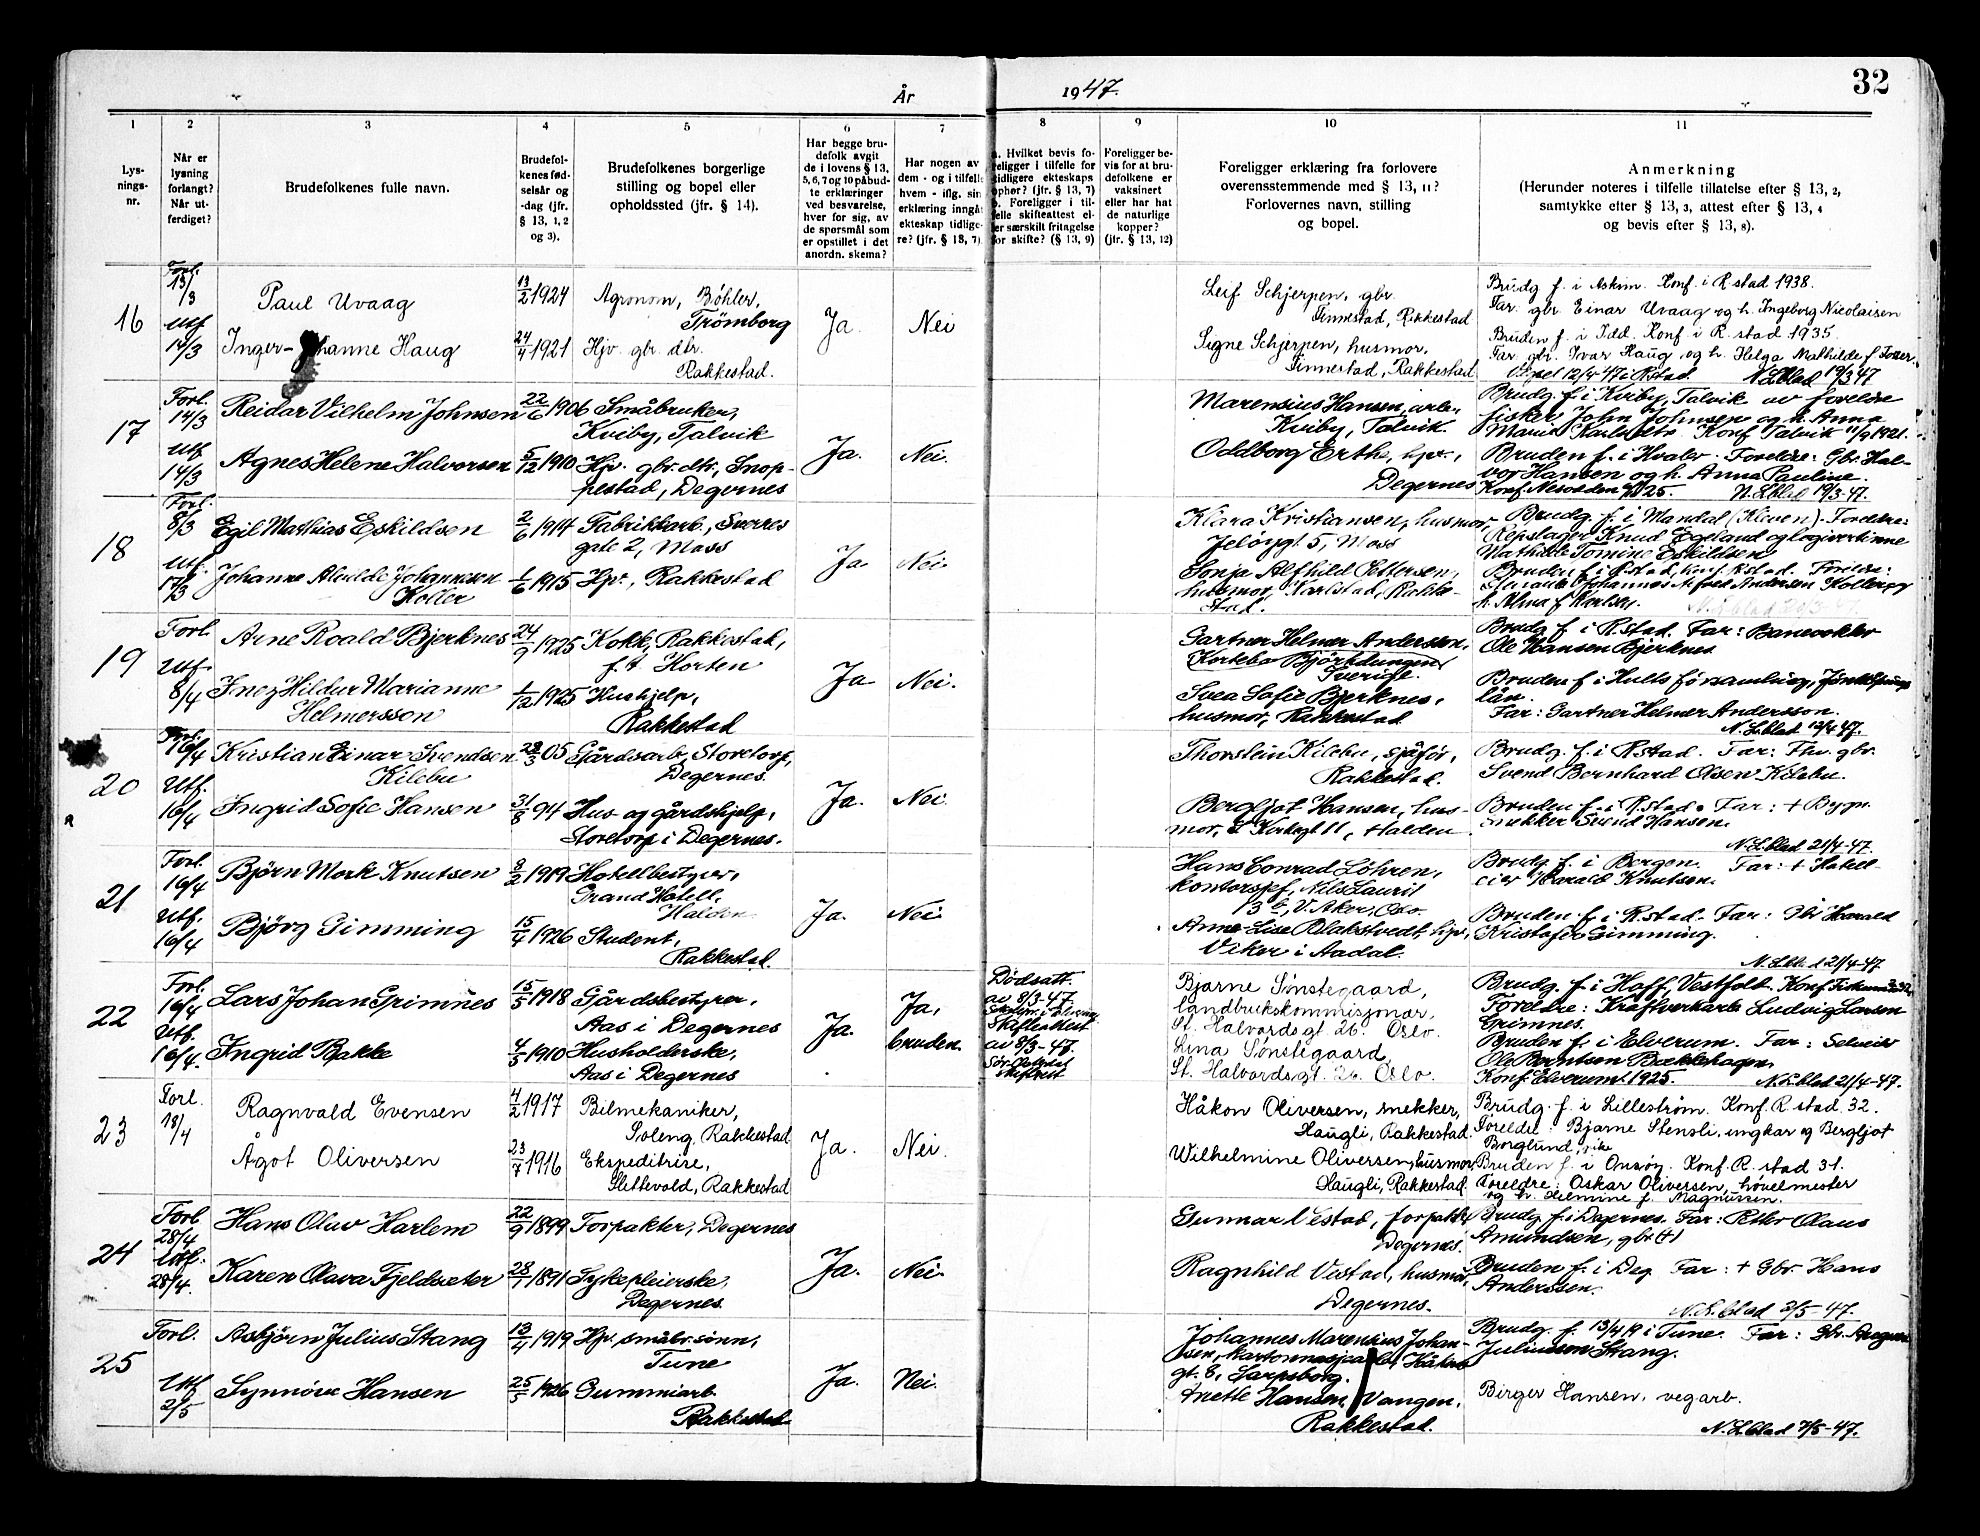 32
År 1947.
1 2 3 4 5 6 7 8 9 10 11
Lys-
nings-
nr.
Når er
lysning
forlangt?
Når ut-
ferdiget?
Brudefolkenes fulle navn.
Brudefol-
kenes fød-
selsår og
-dag (jfr.
§ 13, 1, 2
og 3).
Brudefolkenes borgerlige
stilling og bopel eller
opholdssted (jfr. § 14).
Har begge bru-
defolk avgitt
de i lovens § 13,
5, 6, 7 og 10 påbud-
te erklæringer
ved besvarelse,
hver for sig, av
de spørsmål som
er opstillet i det
anordn. skema?
Har nogen av
dem - og i tilfelle
hvem - iflg. sin
erklæring inngått
ekteskap tidlige-
re? (jfr. § 13, 7)
a. Hvilket bevis fo-
religger i tilfelle for
tidligere ekteskaps
ophør? (jfr. § 13, 7)
b. Foreligger i til-
felle skifteattest el-
ler særskilt fritagelse
for skifte? (§ 13, 9)
Foreligger be-
vis for at bru-
defolkene er
vaksinert
eller har hat
de naturlige
kopper?
(jfr. § 13, 12)
Foreligger erklæring fra forlovere
overensstemmende med § 13, 11?
Forlovernes navn, stilling
og bopel.
Anmerkning
(Herunder noteres i tilfelle tillatelse efter § 13, 2,
samtykke efter § 13, 3, attest efter § 13, 4
og bevis efter § 13, 8).
16
Forl.
13/3
Utf
14/3
Paul Uvaag
Inger-Johanne Haug
13/2 1924
24/4 1921
Agronom, Bøhler,
Trømborg
Hjv. gbr. dtr.
Rakkestad.
Ja.
Nei
Leif Schjerpen, gbr.
Finnestad, Rakkestad
Signe Schjerpen, husmor.
Finnestad, Rakkestad
Brudg f. i Askim. Konf. i R.stad 1938.
Far gbr Einar Uvaag og h. Ingeborg Nicolaisen
Bruden f. i Idd. Konf i R.stad 1935.
Far gbr. Ivar Haug og h. Helga Mathilde f
Vigsel 12/4 47 i R.stad. 19/3 47
17
Forl.
14/3
Utf
14/3
Reidar Vilhelm Johnsen
Agnes Helene Halvorsen
22/6 1906
5/12 1910
Småbruker,
Kviby, Talvik
Hjv. gbr. dtr., Snop-
pestad, Degernes
Ja.
Nei.
Marensius Hansen, arb.,
Kviby, Talvik.
Oddborg Erth, hjv.,
Degernes
Brudg. f. i Kviby, Talvik av foreldre
fisker John Johnsen og h. Anna
Marie Karlsdtr. Konf Talvik 11/9 1921.
Bruden f. i Hvaler. Foreldre: Gbr. Hal-
vor Hansen og h. Anna Pauline.
Konf. Nesodden 1925. 19/3-47.
18
Forl.
8/3
Utf.
17/3
Egil Mathias Eskildsen
Johanne Alvilde Johannessen
Koller
2/6 1914
1/6 1915
Fabrikkarb., Sverres
gate 2, Moss
Hjv., Rakkestad
Ja
Nei
Klara Kristiansen, husmor,
Jeløygt 5, Moss
Sonja Alfhild Pettersen,
husmor, Rakke-
stad.
Brudg. f. i Mandal (Kleven). Foreldre:
Repslager Knud Egeland og logivertinne
Mathilde Tomine Eskildsen
Bruden f. i R.stad, konf R.stad. Foreldre:
Johannes Alfred Andersen Koller og
h. Alma f. Karlsen.
19
Forl.
Utf.
8/4
Arne Roald Bjerknes
Inez Hildur Marianne
Helmersson
24/9 1925
1/12 1925
Kokk, Rakkestad,
f.t. Horten
Hushjelp,
Rakkestad
Ja
Nei.
Gartner Helmer Andersson,
Sverige.
Svea Sofie Bjerknes,
husmor, Rakkestad
Brudg f. i R.stad. Far: Banevokter
Ole Hansen Bjerknes
Bruden f. i Hults församling, Jönköpings
län.
Far: Gartner Helmer Andersson.
12/4 47.
20
Forl.
16/4
Utf.
16/4
Kristian Einar Svendsen
Kilebu
Ingrid Sofie Hansen
05
94
Gårdsarb., Storetorp,
Degernes.
Hus og gårdshjelp,
Storetorp i Degernes.
Ja.
Nei.
Thorstein Kilebu, sjåfør,
Rakkestad.
Bergljot Hansen, hus-
mor, 11, Halden
Brudg. f. i R.stad. Far: Fhv. gbr.
Svend Bernhard Olsen Kilebu.
Bruden f. i R.stad. Far: + Bygn.
snekker Svend Hansen.
21/4-47.
21
Forl.
16/4
Utf.
16/4
Bjørn Mork Knutsen
Bjørg Gimming
8/2 1919
15/4 1926
Hotellbestyrer,
Grand Hotell,
Halden
Student,
Rakkestad.
Ja.
Nei
Hans Conrad Löhren,
kontorsjef, Nils Lauritsen
V. Aker, Oslo.
Anne-Lise Blakstvedt, hjv.,
Viker i Aadal.
Brudg. f. i Bergen. Far: + Hotel-
eier Harald Knutsen.
Bruden f. i R.stad. Far: Gbr Harald
Kristofer Gimming.
21/4-47
22
Forl.
16/4
Utf.
16/4.
Lars Johan Grimnes
Ingrid Bakke
15/5 1918
4/5 1910
Gårdsbestyrer,
Aas i Degernes
Husholderske,
Aas i Degernes
Ja.
Ja,
bruden.
Dødsatt.
av 8/3-47.
Skifteattest
av 8/3-47.
Bjarne Sønstegaard,
landbrukskommisjonær,
St. Halvardsgt. 26. Oslo.
Lina Sønstegaard,
St. Halvardsgt. 26. Oslo.
Brudg. f. i Hoff, Vestfold. Konf.
Foreldre: Kraftverkarb. Ludvig Larsen
Grimnes.
Bruden f. i Elverum. Far: Selveier
Ole Berntsen Bakkehagen.
Konf. Elverum 1925. 21/4-47.
23
Forl.
18/4
Ragnvald Evensen
Ågot Oliversen
4/2 1917
23/7 1916
Bilmekaniker,
Soleng, Rakkestad
Ekspeditrise,
Slettevold, Rakkestad
Ja.
Nei.
Håkon Oliversen, snekker,
Haugli, Rakkestad.
Wilhelmine Oliversen, husmor,
Haugli, Rakkestad
Brudg. f. i Lillestrøm. Konf. R.stad 32.
Foreldre: Bjarne Stensli, ungkar og Bergljot
Borglund, pike
Bruden f. i Onsøy. Konf. R.stad 31.
Foreldre: Oskar Oliversen, høvelmester
og h. Helmine f. Magnussen.
24
Forl
28/4
Utf.
28/4.
Hans Olav Harlem
Karen Olava Fjeldseter
22/9 1899
28/1 1891
Forpakter, Degernes
Sykepleierske,
Degernes.
Ja.
Nei.
Gunnar Vestad, forpakter
Degernes.
Ragnhild Vestad, husmor,
Degernes.
Brudg. f. i Degernes. Far: Petter Olaus
Amundsen, gbr (+)
Bruden f. i Deg. Far: + Gbr. Hans
Anderssen.
2/5-47.
25
Forl.
Utf
2/5
Asbjørn Julius Stang
Synnøve Hansen
13/4 1919
25/5 1926
Hjv. småbr. sønn,
Tune
Gummiarb.
Rakkestad
Ja.
Nei.
Johannes Marensius Johan-
sen,
gt. 6, Sarpsborg.
Anette Hansen, Vangen,
Rakkestad.
Brudg. f. 13/4 19 i Tune. Far: Gbr. August
Juliussen Stang.
Birger Hansen, vegarb.
7/5-47.